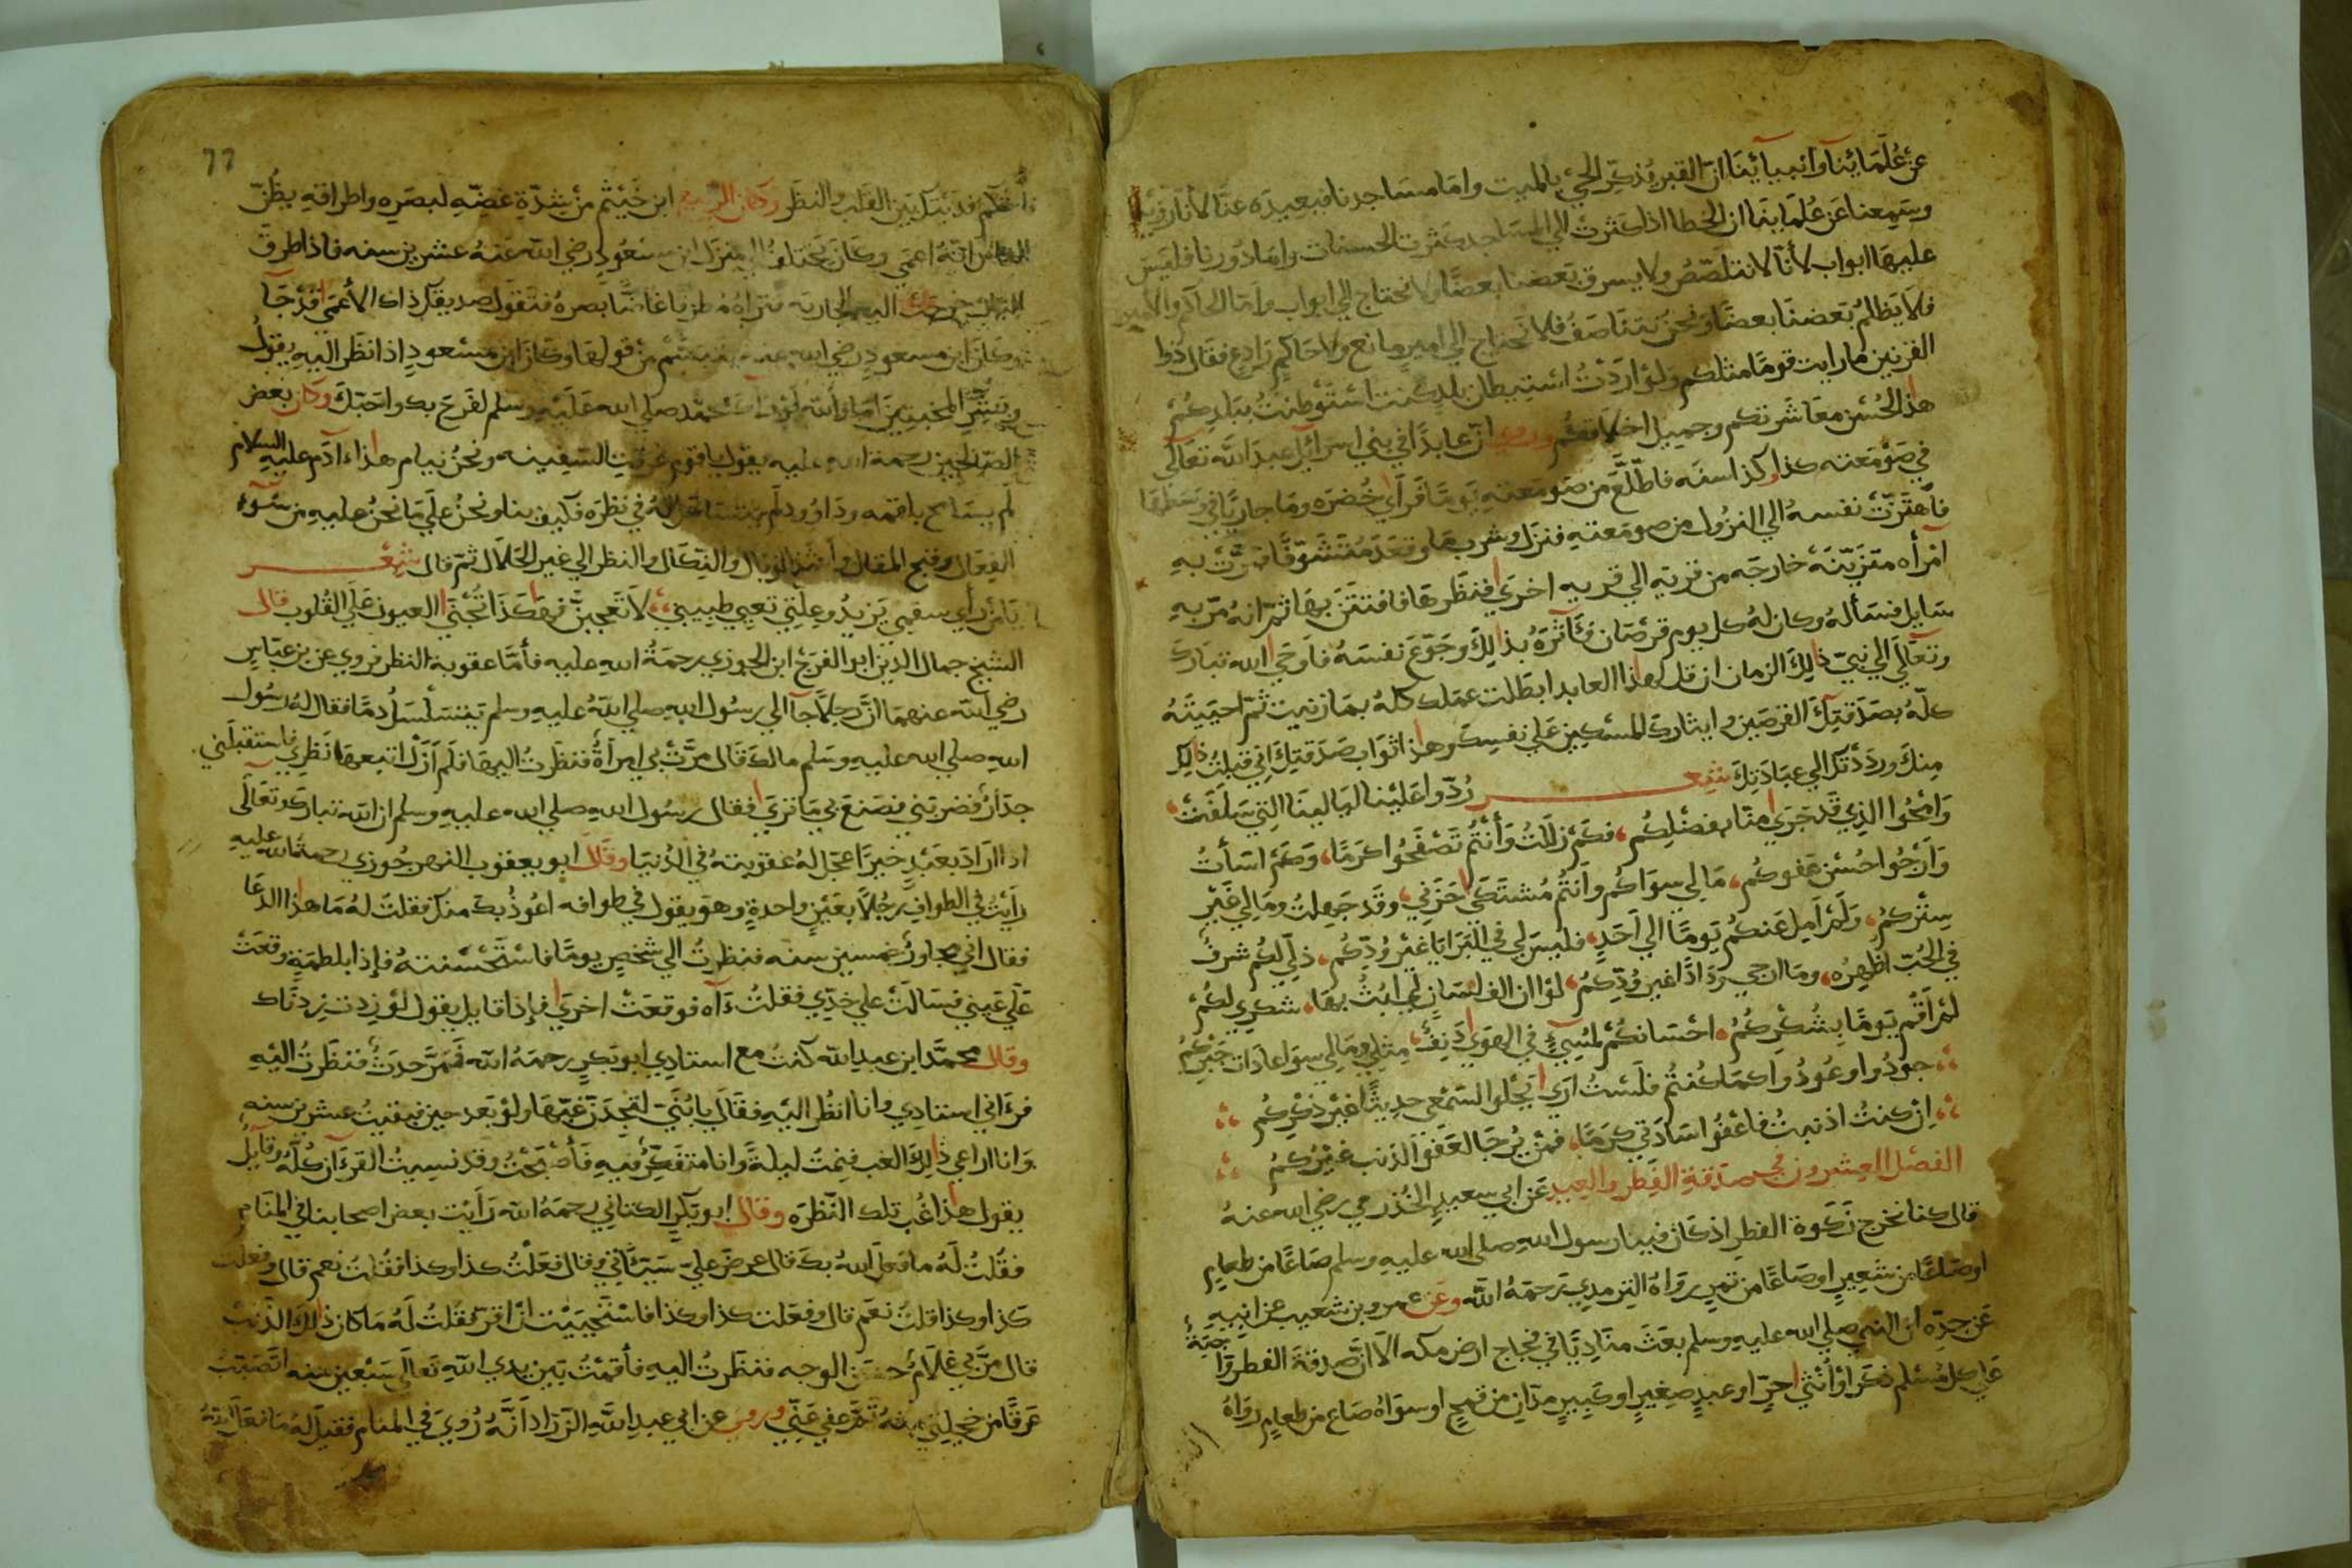 عن علمائنا وانبيائنا ان القبر يذكر الحي بالميت واما مساجدنا فبعيده عنا لانا روينا
وسمعنا عن علمائنا ان الخطا اذا كثرت الي المساجد كثرت الحسنات واما دورنا فليس
عليها ابواب لأنا لا نتلصص ولا يسرق بعضنا بعضا ولا نحتاج الي ابواب واما الحاكم والامير
فلا يظالم بعضنا بعضا ونحن نتناصف فلا نحتاج الي امير مانع ولا حاكم رادع فقال ذوا
القرنين ما رايت قوما مثلكم ولو اردت استيطان بلد كنت استوطنت ببلدكم
هذا لحسن معاشرتكم وجميل اخلاقكم وروي ان عابدا في بني اسرائيل عبد الله تعالي
في صومعته كذا وكذا سنه فاطلع من صومعته يوما فراي خضره وما جاريا في وسطها
فاهتزت نفسه الي النزول من صومعته فنزل وشرب ما وقعد متشوفا فمرت به
امرأه متزينه خارجه من قريه الي قريه اخري فنظرها فافتتن بها ثم انه مر به
سايل فسأله وكان له كل يوم قرصان فآثره بذلك وجوع نفسه فاوحي الله تبارك
وتعالي الي نبي ذلك الزمان ان قل لهذا العابد ابطلت عملك كله بما زنيت ثم احييته
كله بصدقتك القرصين وايثارك المسكين علي نفسك وهذا ثواب صدقتك اني قبلت ذلك
منك ورددتك الي عبادتك شعر ردوا علينا ليالينا التي سلفت
وامحوا الذي قد جري منا بفضلكم فكم زللت وأنتم تصفحوا كرما وكم اسأت
وارجوا حسن عفوكم ما لي سواكم وانتم مشتكي حزني وقد جهلت وما لي غير
ستركم ولم امل عنكم يوما الي احد فليس لي في البرايا غير ودكم ذلي لكم شرف
في الحب اظهره وما ارجي رذاذا غير ودكم لو ان الف لسان لي ابث بها شكري لكم
لم اقم يوما بشكركم احسانكم لمسيء في الهوي دنف مثلي وما لي سوا عادات جبركم
جودوا وعودوا كما كنتم فلست اري يحلوا لسمعي حديثا غير ذكركم
ان كنت اذنبت فاعفوا سادتي كرما فمن يرجا لعفو الذنب غيركم
الفصل العشرون في صدقة الفطر والعيد عن ابي سعيد الخذري رضي الله عنه
قال كنا نخرج زكوة الفطر اذ كان فينا رسول الله صلي الله عليه وسلم صاعا من طعام
او صاعا من شعير او صاعا من تمر رواه الترمدي رحمه الله وعن عمرو بن شعيب عن ابيه
عن جده ان النبي صلي الله عليه وسلم بعث مناديا في فجاج ارض مكه الا ان صدقة الفطر واجبة
علي كل مسلم ذكر او أنثي حر او عبد صغير او كبير مدان من قمح او سواه صاع من طعام رواه
77
قد يتكل بين القلب والنظر وكان الربيع ابن خيثم من شدة غضه لبصره واطراقه يظن
الناس انه اعمي وكان يختلف الي منزل ابن مسعود رضي الله عنه عشرين سنه فاذا طرق
الباب خرجت اليه الجاريه فتراه مطرقا غاضا بصره فتقول صديقك ذاك الأعمي قد جا
وكان ابن مسعود رضي الله عنه يتبسم من قولها وكان ابن مسعود اذا نظر اليه يقول
وبشر المخبتين اما والله لو رآك محمد صلي الله عليه وسلم لفرح بك واحبك وكان بعض
الصالحين رحمة الله عليه يقول يا قوم غرقت السفينه ونحن نيام هذا ءادم عليه السلام
لم يسامح بلقمه وداوود لم له في نظره فكيف بنا ونحن علي ما نحن عليه من سوء
الفعال وقبح المقال واشد الوبال والنكال والنظر الي غير الحلال ثم قال شعر
يا من راي سقمي يزيد وعلتي تعيي طبيبي لا تعجبن فهكذا تجني العيون علي القلوب قال
الشيخ جمال الدين ابو الفرج ابن الجوزي رحمة الله عليه فأما عقوبة النظر فروي عن بن عباس
رضي الله عنهما ان رجلا جآ الي رسول الله صلي الله عليه وسلم يتسلسل دما فقال له رسول
الله صلي الله عليه وسلم مالك قال مرت بي امرأة فنظرت اليها فلم ازل اتبعها نظري فاستقبلني
جدار فضربني فصنع بي ما تري فقال رسول الله صلي الله عليه وسلم ان الله تبارك وتعالي
اذا اراد بعبد خيرا عجل له عقوبته في الدنيا وقال ابو يعقوب النهرجوزي رحمة الله عليه
رأيت في الطواف رجلا بعين واحدة وهو يقول في طوافه اعوذ بك منك فقلت له ما هذا الدعا
فقال اني مجاور خمسين سنه فنظرت الي شخص يوما فاستحسنته فإذا بلطمة وقعت
علي عيني فسالت علي خدي فقلت ءاه فوقعت اخري فإذا قايل يقول لو زدت زدناك
وقال محمد ابن عبد الله كنت مع استادي ابو بكر رحمه الله فمر حدث فنظرت اليه
فرءاني استادي وانا انظر اليه فقال يا بني لتجدن غبها ولو بعد حين فبقيت عشرين سنه
وانا اراعي ذلك الغب فنمت ليلة وانا متفكر فيه فأصبحت وقد نسيت القرءان كله وقايل
يقول هذا غب تلك النظره وقال ابو بكر الكتاني رحمه الله رأيت بعض اصحابنا في المنام
فقلت له ما فعل الله بك قال عرض علي سيئاتي وقال فعلت كذا وكذا فقلت نعم قال وفعلت
كذا وكذا قلت نعم قال وفعلت كذا وكذا فاستحييت ان اقر فقلت له ما كان ذلك الذنب
قال مر بي غلام حسن الوجه فنظرت اليه فأقمت بين يدي الله تعالي سبعين سنه اتصبب
عرقا من خجلتي منه ثم عفي عني وروي عن ابي عبد الله الزراد أنه رؤي في المنام فقيل له ما فعل الله